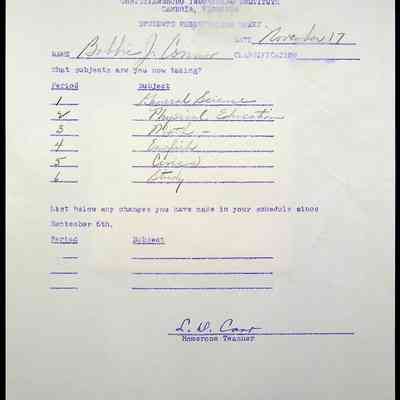 CHRISTIANSBURG INDUSTRIAL INSTITUTE
CAMBRIA, VIRGINIA
STUDENTS REGISTRATION SHEET
DATE November 17
NAME Bobbie J. Connor CLASSIFICATION
What subjects are you now taking?
Period Subject
1 General Science
2 Physical Education
3 Math -
4 English
5 Civics
6 Study
List below any changes you have made in your schedule since
September 6th.
Period Subject
L. D. Carr
Homeroom Teacher